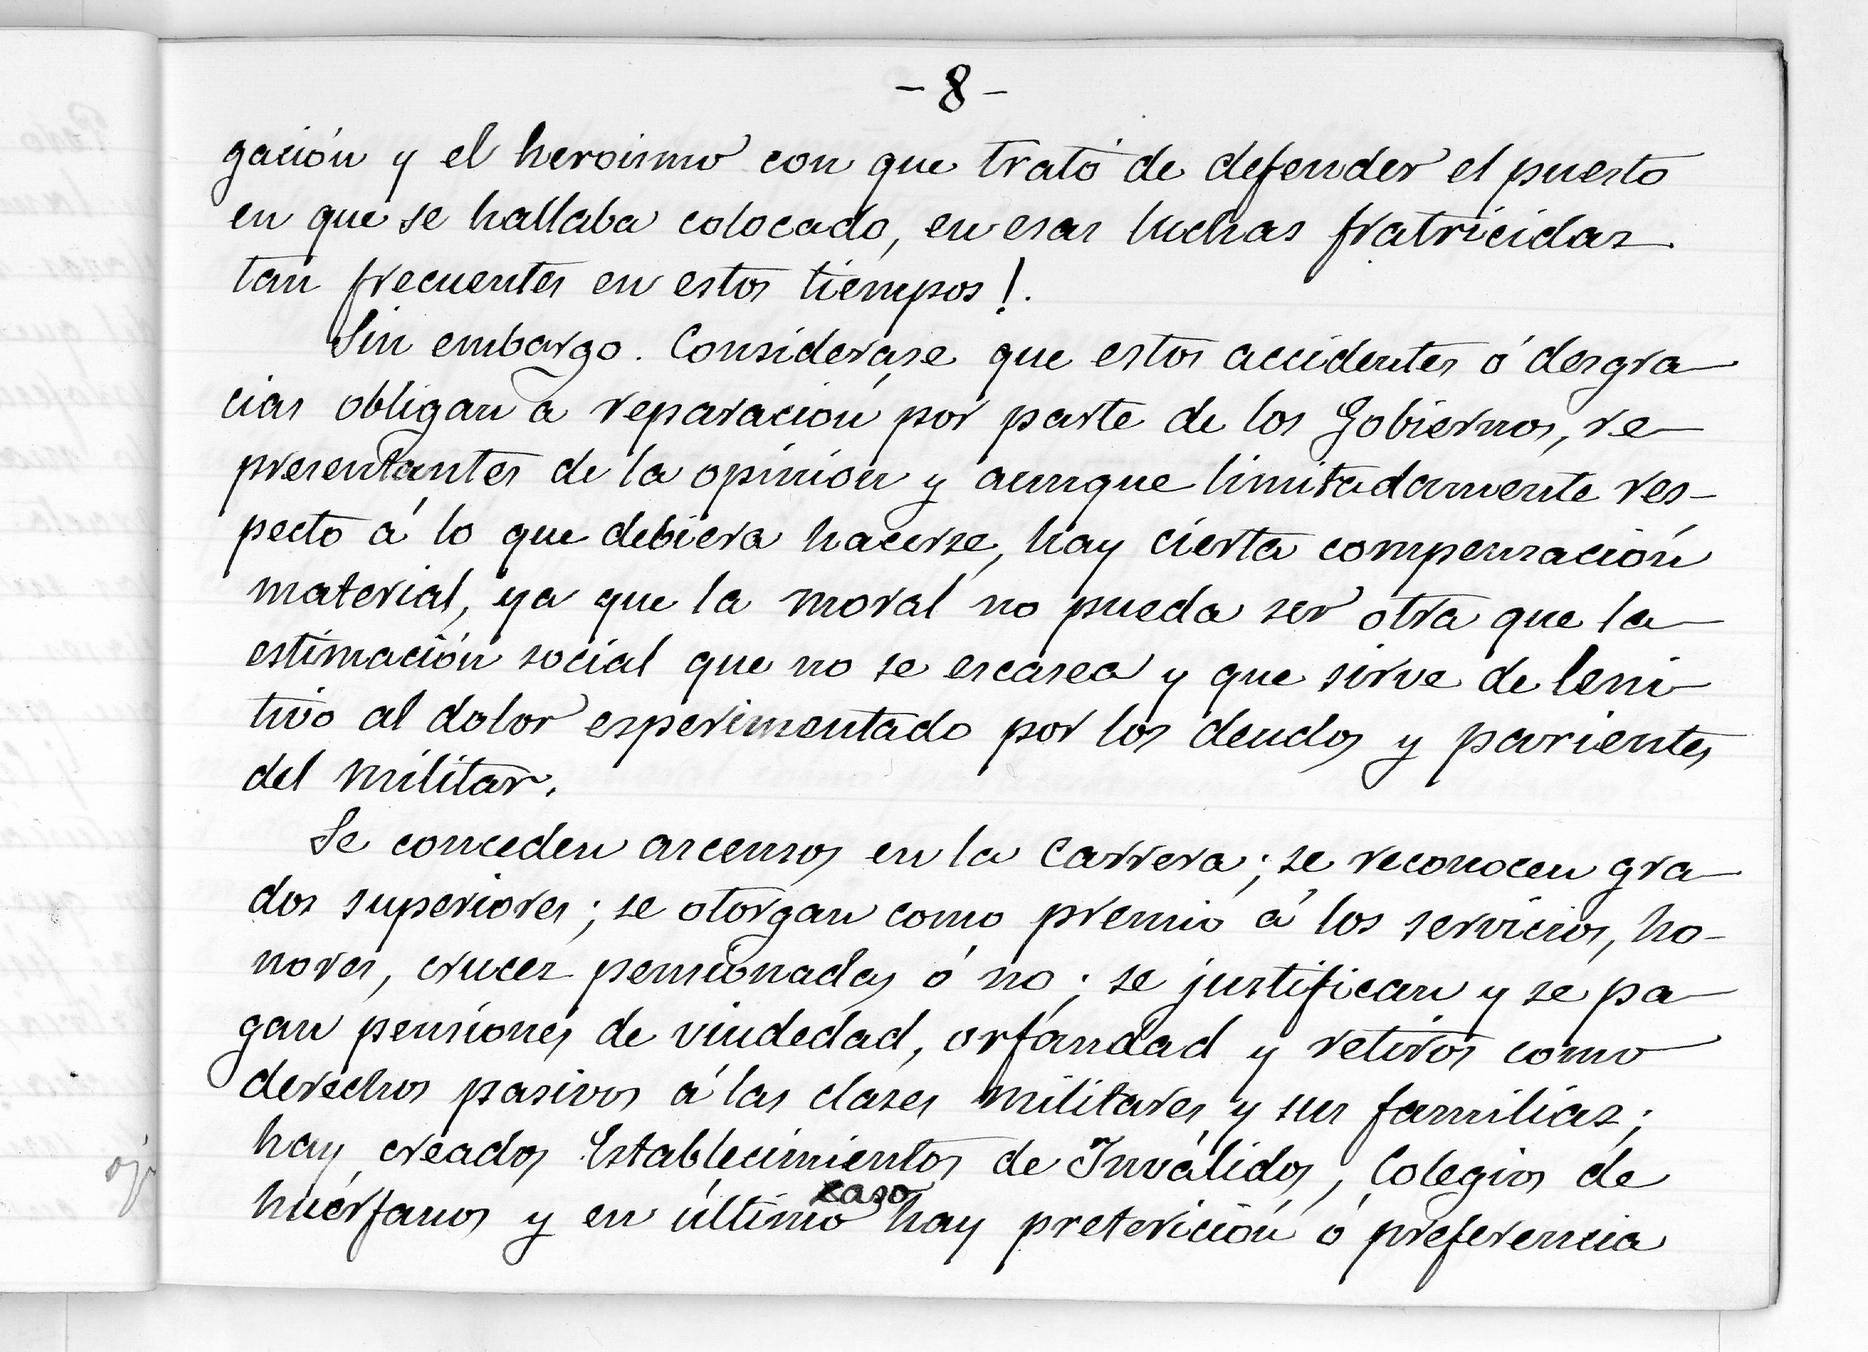 - 8 -
gación y el heroismo con que trató de defender el puesto
en que se hallaba colocado, en esas luchas fratricidas
tan frecuentes en estos tiempos!.
Sin embargo. Considerase que estos accidentes ó desgra-
cias obligan á reparación por parte de los Gobiernos, re-
presentantes de la opinión y aunque limitadamente res-
pecto á lo que debiera hacerse, hay cierta compensación
material, ya que la moral no pueda ser otra que la
estimación social que no se escasea y que sirve de leni-
tivo al dolor esperimentado por los deudos y parientes
del militar.
Se conceden ascensos en la carrera; se reconocen gra-
dos superiores; se otorgan como premio á los servicios, ho-
nores, cruces pensionadas ó no; se justifican y se pa-
gan pensiones de viudedad, orfandad y retiros como
derechos pasivos á las clases militares y sus familias;
hay creados Establecimientos de Inválidos, Colegios de
caso
huérfanos y en último hay preterición ó preferencia